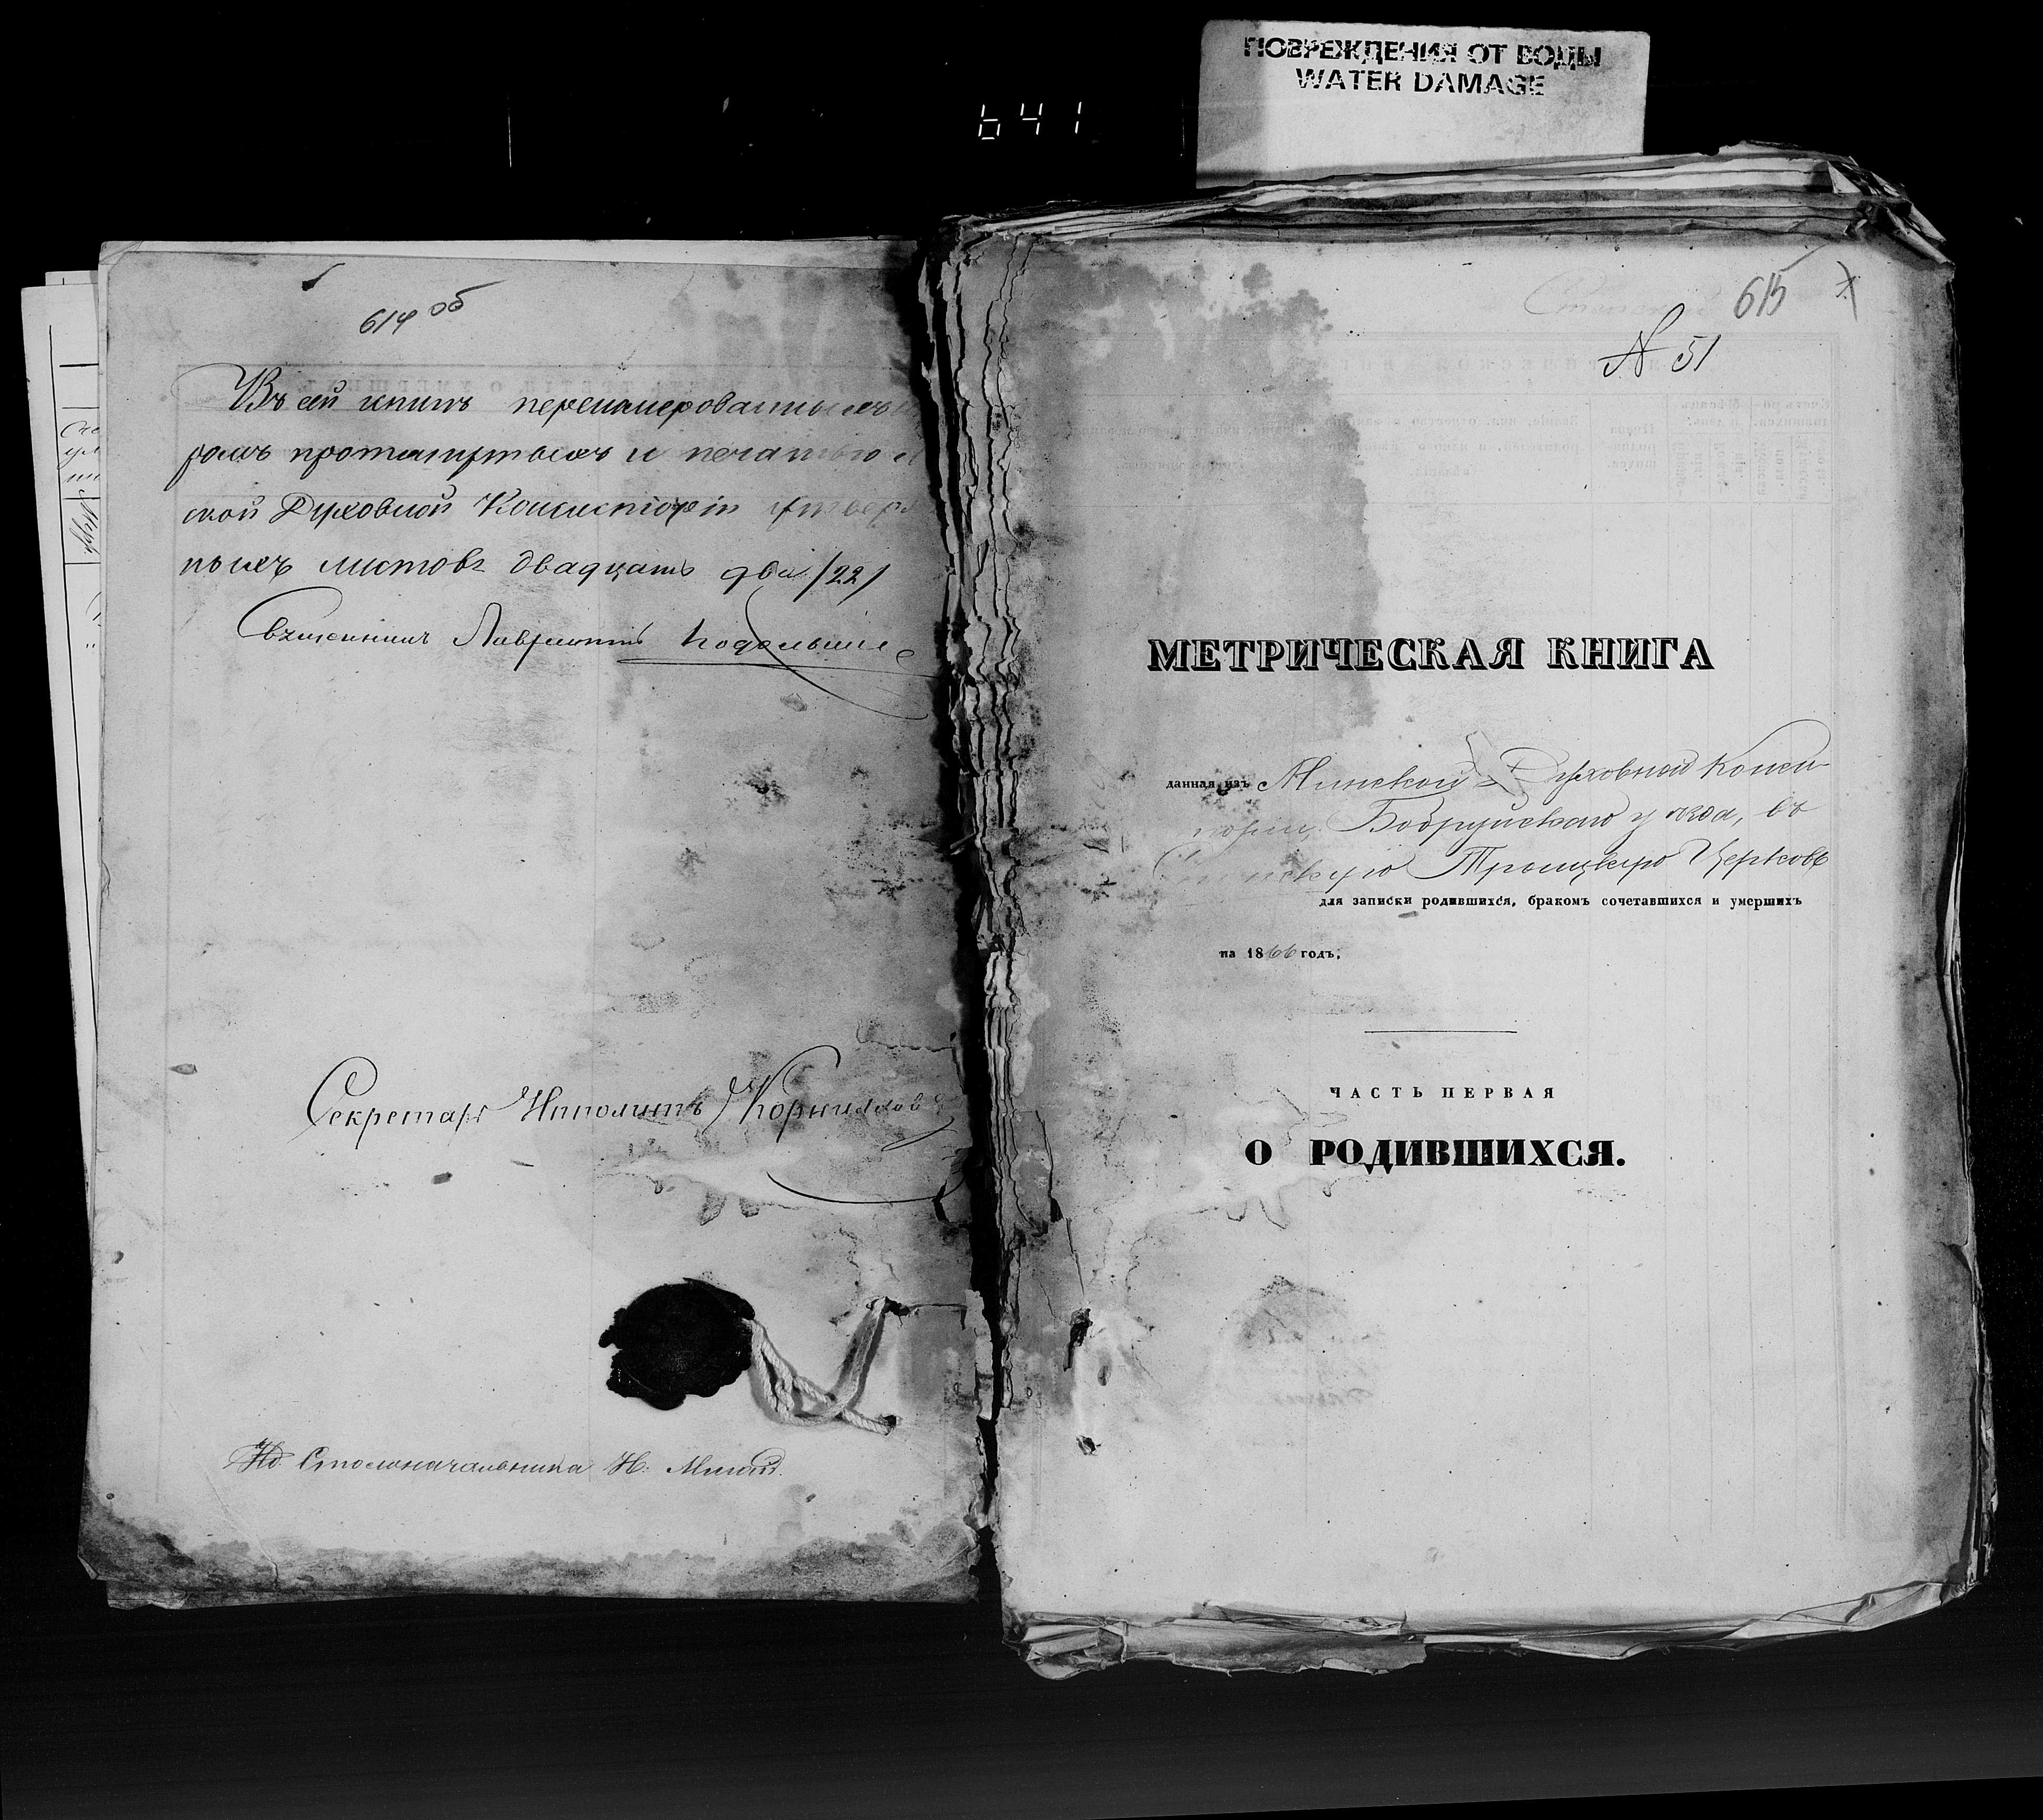 ПОВРЕЖДЕНИЯ ОТ ВОДЫ
WATER DAMAGE
641
614 об
Въ сей книгѣ перенумерованныхъ
ромъ прошнурныхъ и печатью
ской Духовной Консисторіи утверж
ныхъ листовъ двадцать два /22/
Священникъ Лаврентій
Секретарь Ипполитъ Корниловъ
Ид. Столоначальника Н.
615
N 51
МЕТРИЧЕСКАЯ КНИГА
данная изъ Минской Духовной Консис
торіи, Бобруйскаго уѣзда, въ
Троицкую Церковь
для записки родившихся, бракомъ сочетавшихся и умершихъ
на 1866 годъ,
ЧАСТЬ ПЕРВАЯ
О РОДИВШИХСЯ.